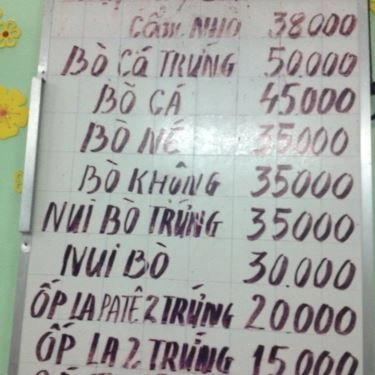 CẨM NHỎ 38000
BÒ CÁ TRỨNG 50.000
BÒ CÁ 45.000
BÒ NÉ 35.000
BÒ KHÔNG 35000
NUI BÒ TRỨNG 35000
NUI BÒ 30.000
ỐP LA PATÊ 2 TRỨNG 20000
ỐP LA 2 TRỨNG 15.000